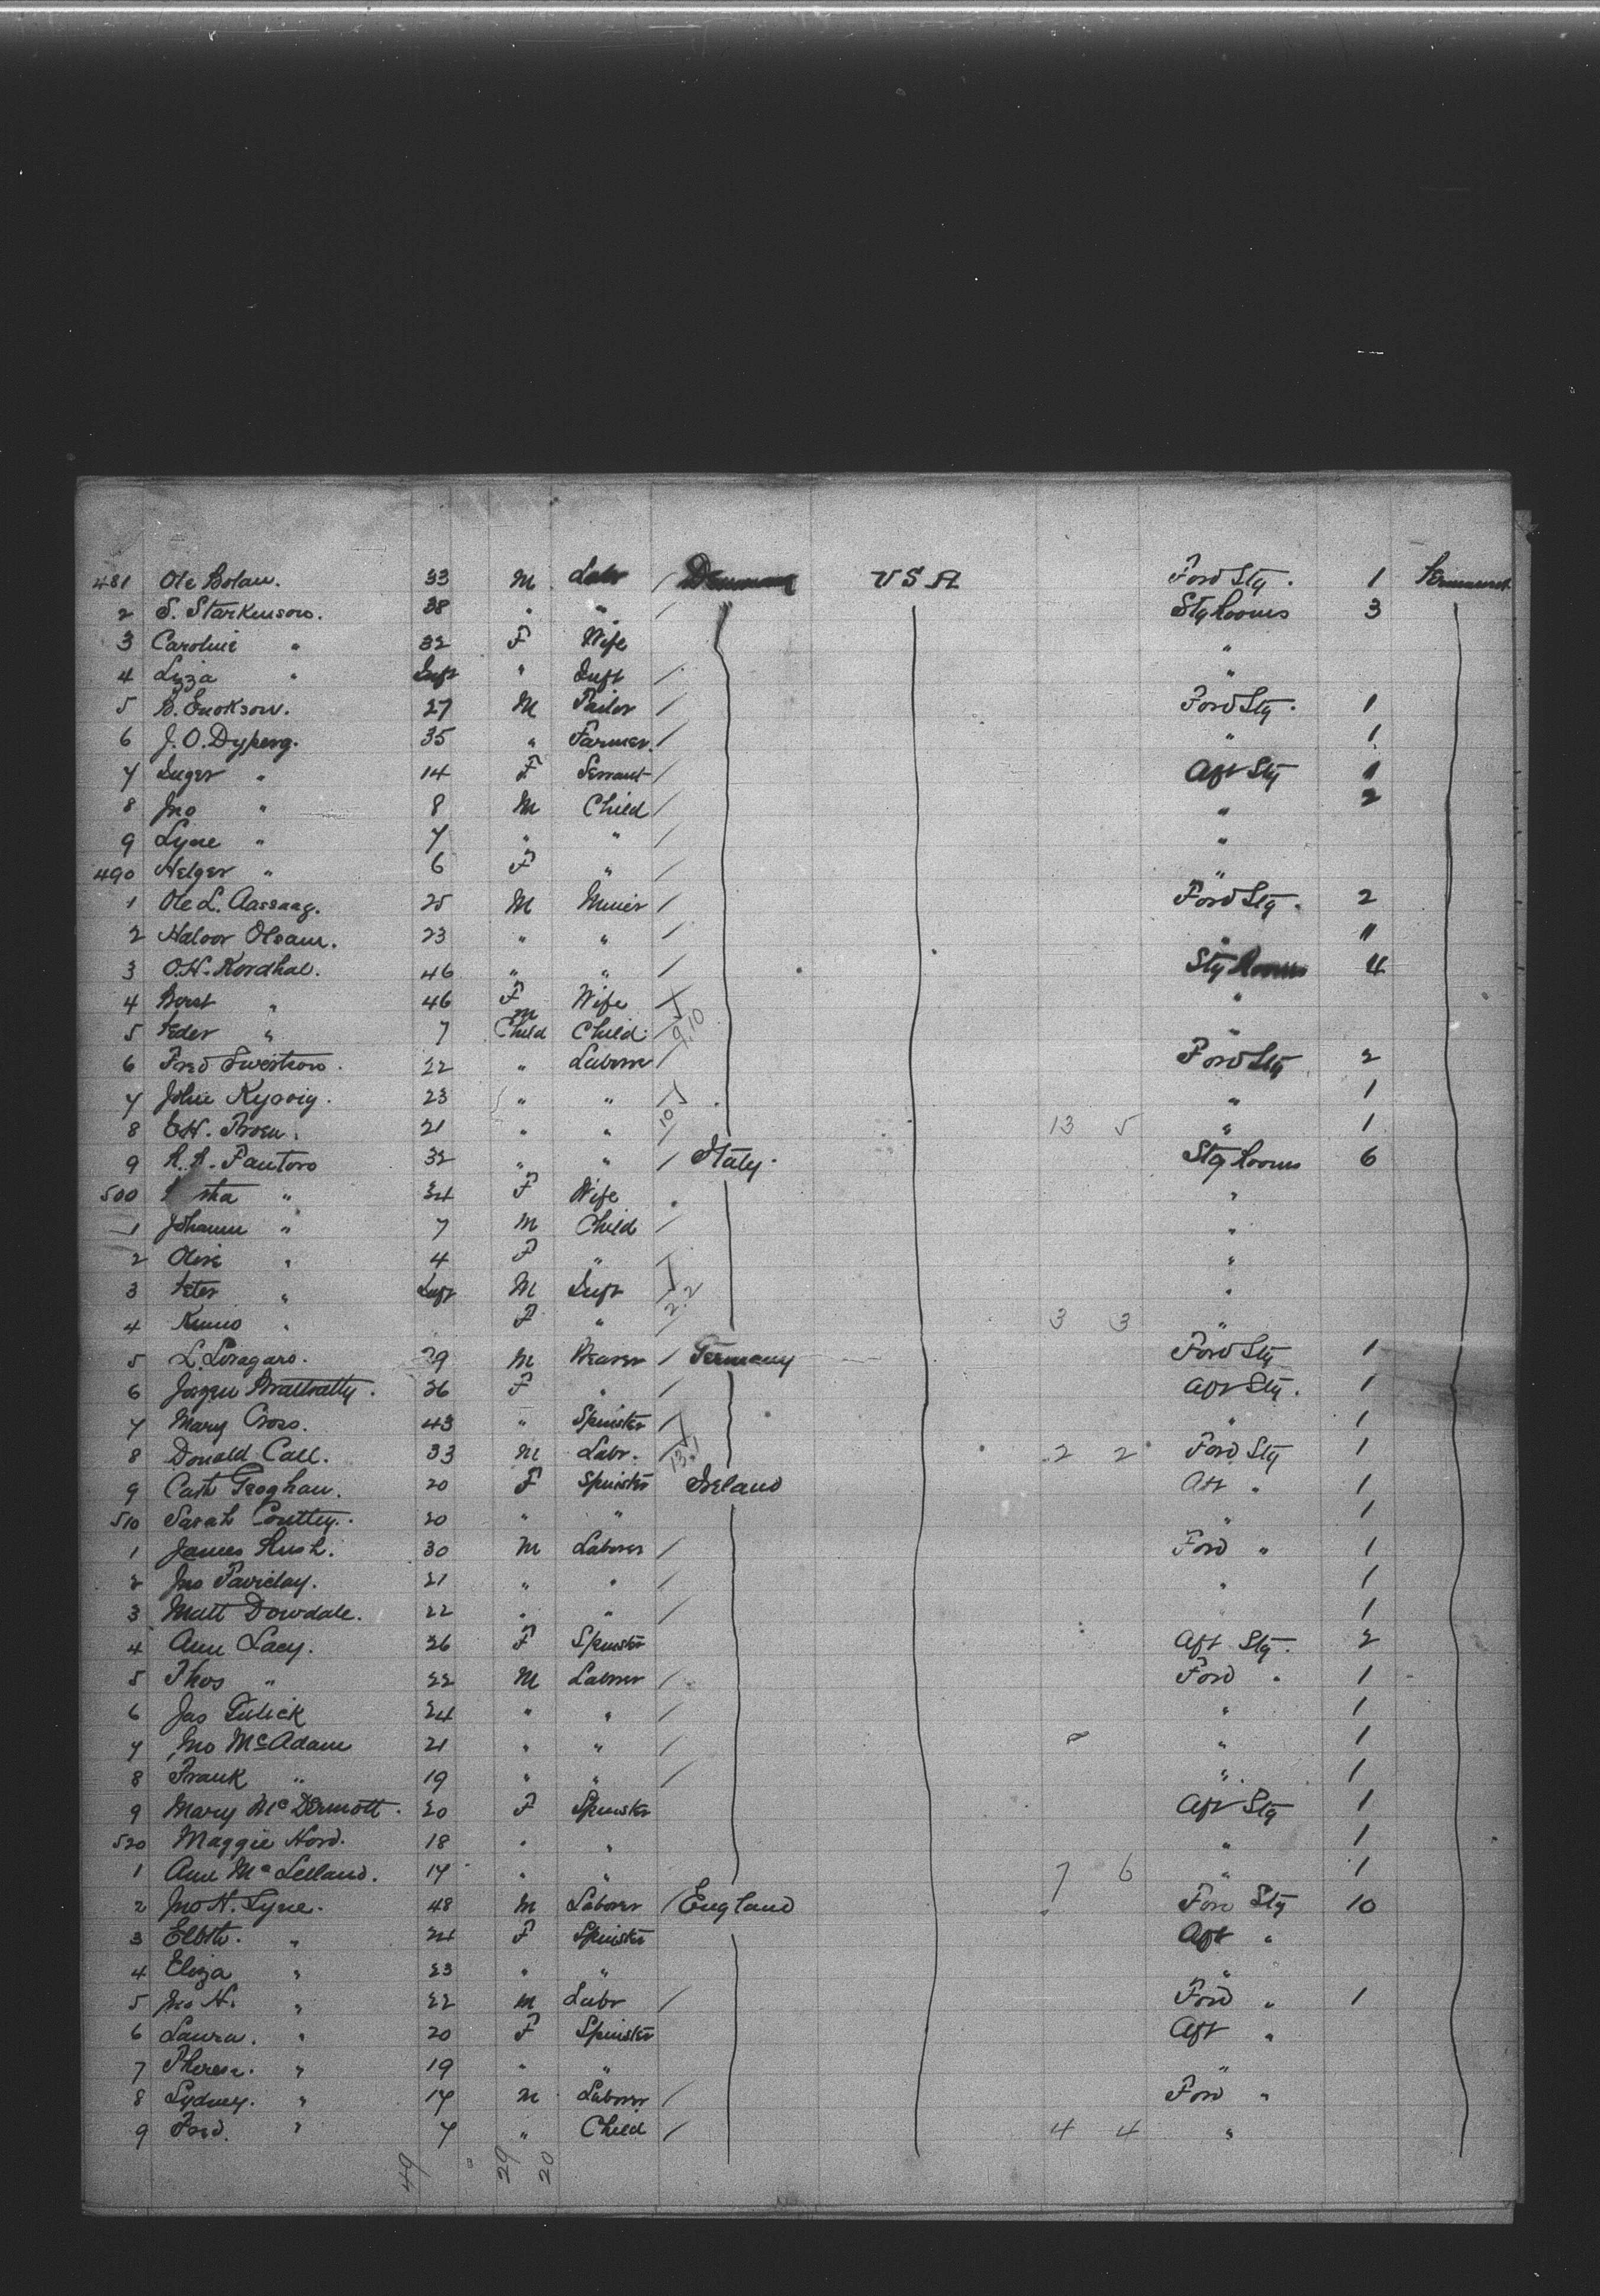 481 Ole Bolan. 33 M Labr / Denmark U S A Ford Stg. 1 Permanent
2 S. Starkenson. 38 " " / Stg Rooms 3
3 Caroline " 32 F Wife "
4 Lizza " Inft " Inft / "
5 B. Enokson. 27 M Tailor / Ford Stg. 1
6 J. O. Dyperg. 35 " Farmer. / " 1
7 Inger " 14 F Servant / Aft Stg 1
8 Jno " 8 M Child / " 2
9 Lyne " 7 " " / "
490 Helger " 6 F " / "
1 Ole L. Aassaag. 25 M Miner / Ford Stg. 2
2 Haloor Olsam. 23 " " / " "
3 O.H. Kordhal. 46 " " / Stg Rooms 4
4 Berst " 46 F Wife / "
5 Peder " 7 M Child Child / 9.10 "
6 Fred Swestrow. 22 " Laborer / Ford Stg 2
7 John Kyovig. 23 " " / " 1
8 E.H. Troen. 21 " " / 10 13 5 " 1
9 A. A. Pantoro 32 " " / Italy. Stg Rooms 6
500 " 34 F Wife "
1 Johann " 7 M Child / "
2 Olive " 4 F " / "
3 Peter " Inft M Inft / 2.2 "
4 " " F " / 3 3 "
5 L. Loragaro. 29 M Weaver / Germany Ford Stg 1
6 26 F " / Aft Stg. 1
7 Mary Cross. 43 " Spinster / " 1
8 Donald Call. 33 M Labr. / 13.1 2 2 Ford Stg 1
9 Cath Geoghan. 20 F Spinster Ireland Aft " 1
510 Sarah 20 " " " 1
1 James Rush. 30 M Laborer / Ford " 1
2 Jno 21 " " / " 1
3 Matt Dowdale. 22 " " / " 1
4 Ann Lacy. 26 F Spinster Aft Stg. 2
5 Thos " 22 M Laborer / Ford " 1
6 Jas Gulick 24 " " / " 1
7 Jno McAdam 21 " " / " 1
8 Frank " 19 " " / " 1
9 Mary McDermott. 20 F Spinster Aft Stg 1
520 Maggie Hord. 18 " " " 1
1 Ann McLelland. 17 " " 7 6 " 1
2 Jno H. Lyne. 48 M Laborer / England Ford Stg 10
3 Elbth. " 24 F Spinster Aft "
4 Eliza " 23 " " "
5 Jno H. " 22 M Labr / Ford " 1
6 Laura. " 20 F Spinster Aft "
7 Theresa. " 19 " " "
8 Sydney. " 17 M Laborer / Ford "
9 Fred. " 7 " Child / 4 4 "
49 " 29 20